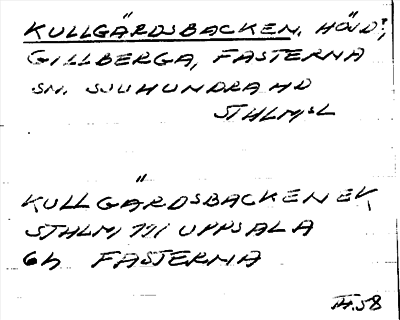 KULLGÄRDSBACKEN, HÖJD?,
GILLBERGA, FASTERNA
SN. SJUHUNDRA HD
STHLMSL
KULLGÄRDSBACKEN EK,
STHLM 11I UPPSALA
6h FASTERNA